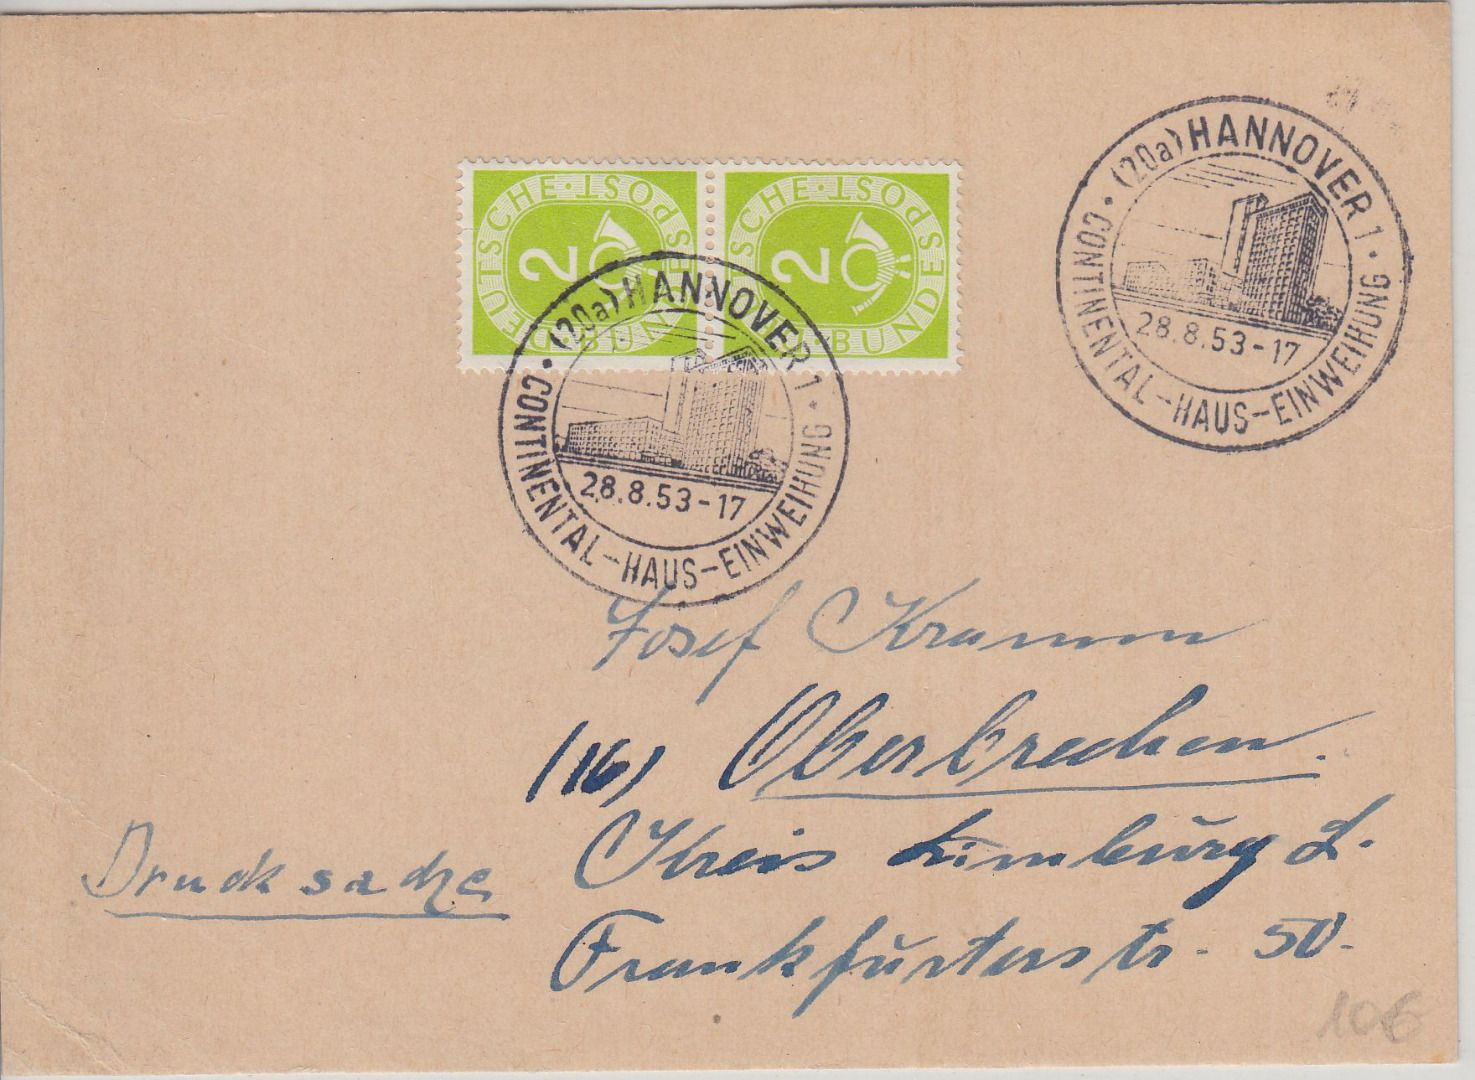 DEUTSCHE·POST BUNDES
2
DEUTSCHE·POST BUNDES
2
(20a) HANNOVER 1
28.8.53-17
CONTINENTAL-HAUS-EINWEIHUNG
(20a) HANNOVER 1
28.8.53-17
CONTINENTAL-HAUS-EINWEIHUNG
Josef Kramm
(16) Oberbrechen.
Kreis Limburg L.
Drucksache
Frankfurterstr. 50.
10€